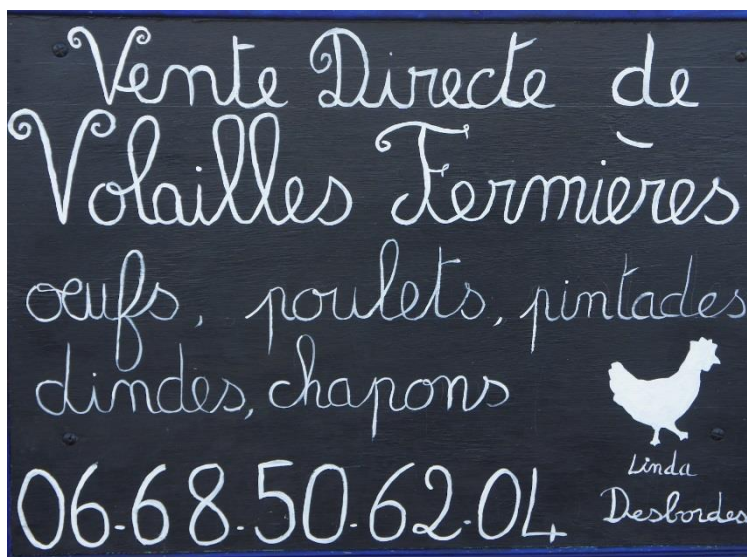 Vente Directe de
Volailles Fermières
œufs, poulets, pintades
dindes, chapons
06.68.50.62.04
Linda
Desbordes